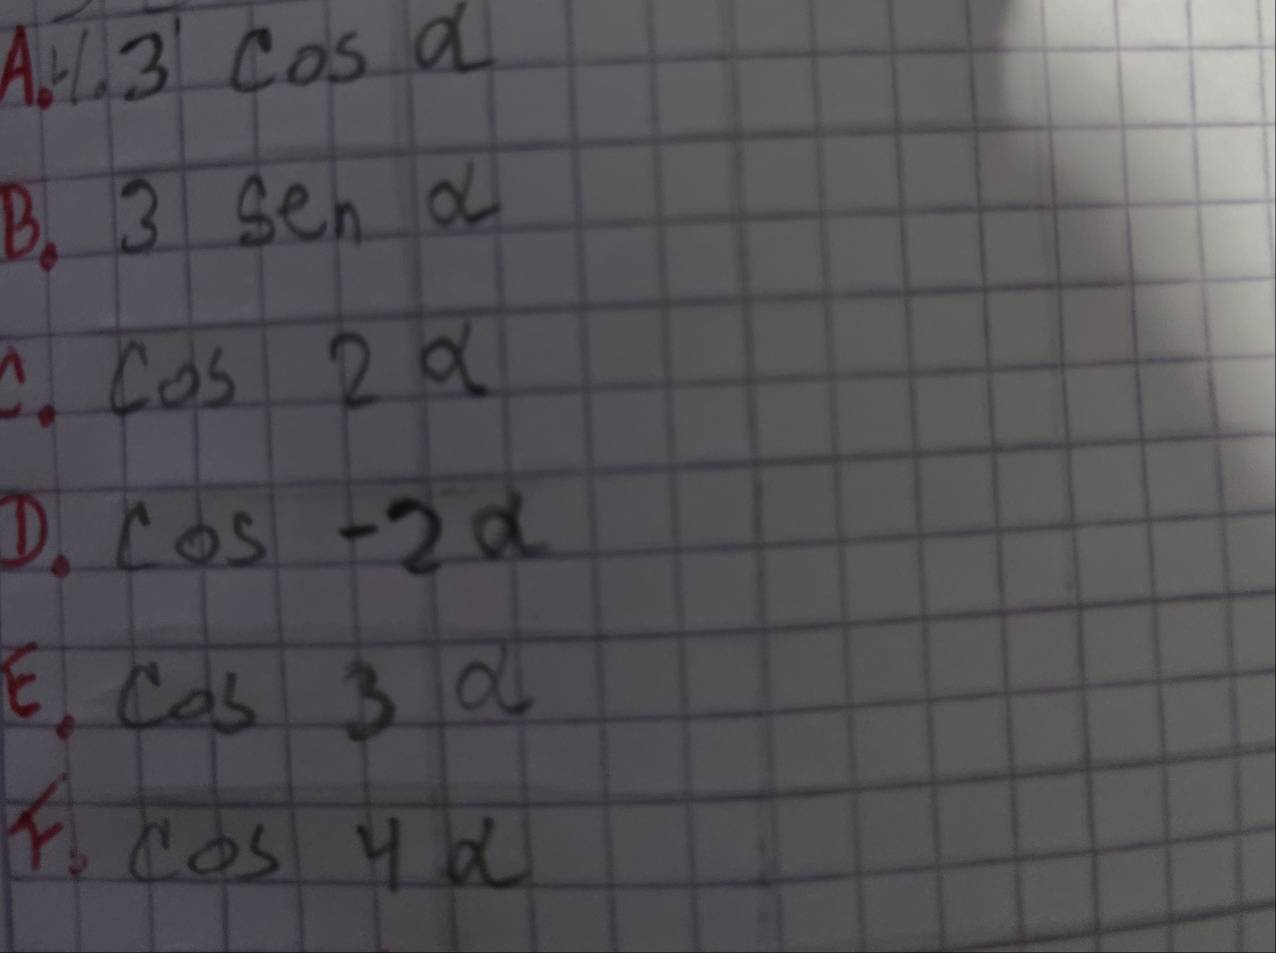 A. 3 cos α
B. 3 sen α
C. cos 2 α
D. cos -2 α
E. cos 3 α
F. cos 4 α